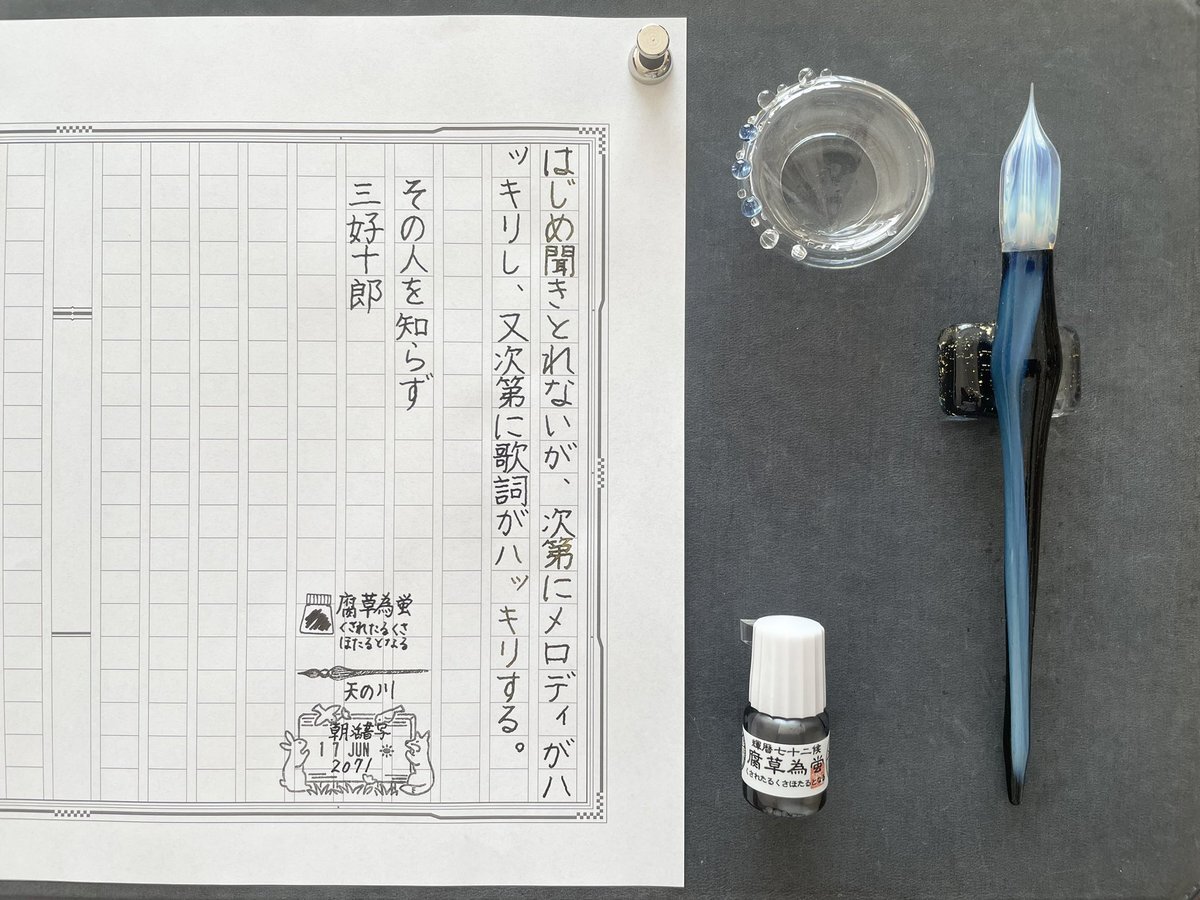 はじめ聞きとれないが、次第にメロディがハ
ッキリし、又次第に歌詞がハッキリする。
その人を知らず
三好十郎
腐草為蛍
くされたるくさ
ほたるとなる
天の川
朝活書写
17 JUN
2071
輝暦七十二候
腐草為蛍
くされたるくさほたるとなる